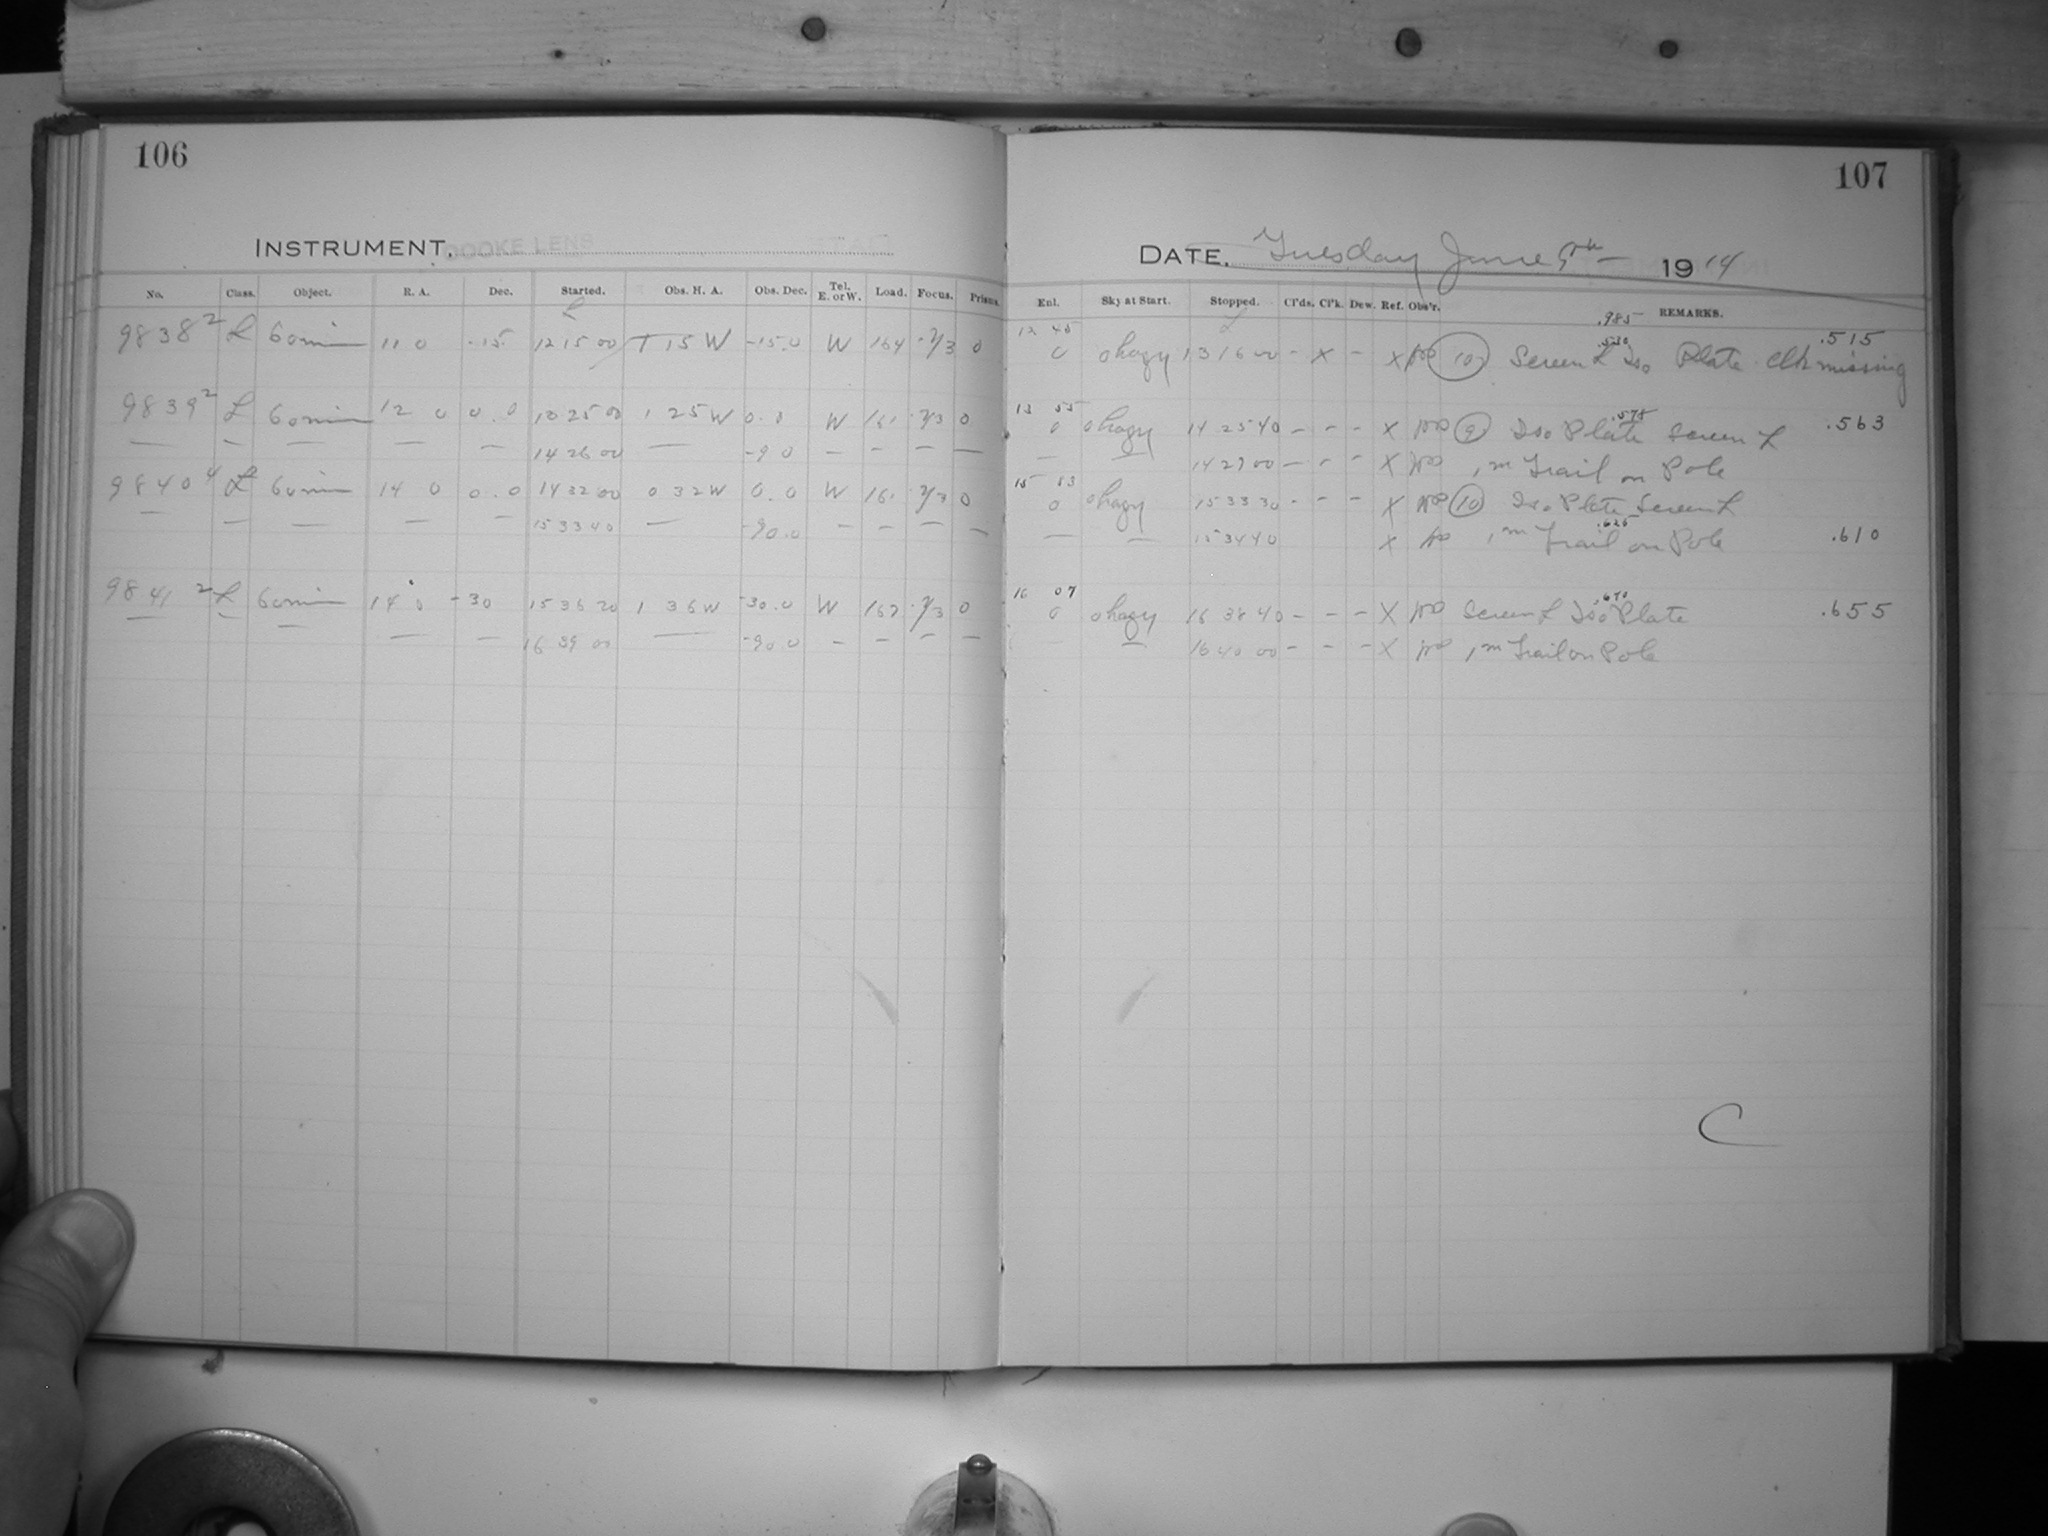 106
INSTRUMENT. COOKE LENS
No. Class. Object. R. A. Dec. Started. Obs. H. A. Obs. Dec. Tel. E. or W. Load. Focus. Prisms
9838² L 60 min 11 0 -15. 12 15 00 1 15 W -15.0 W 164 0
9839² L 60 min 12 0 0.0 25 00 1 25 W 0.0 W 161 0
— — — — — 14 26 00 — -90 — — — —
9840⁴ L 60 min 14 0 0.0 14 32 00 0 32 W 0.0 W 161 0
— — — — — 15 33 40 — -90.0 — — — —
9841² L 60 min 14 0 -30 15 36 20 1 36 W -30.0 W 162 0
— — — — — 16 39 00 — -90 0 — — — —
107
DATE. Tuesday June 1914
Enl. Sky at Start. Stopped. Cl'ds. Cl'k. Dew. Ref. Obs'r. REMARKS.
.985
12 45 .530 .515
0 ohazy 13 16 00 - x - x (10) Screen L Iso Plate Clk missing
13 55 .578
0 ohazy 14 25 40 - - - x (9) Iso Plate Screen L .563
— — 14 27 00 - - - x 1m Trail on Pole
15 03
0 ohazy 15 33 30 - - - x (10) Iso Plate Screen L
.625
— — 15 34 40 x 1m Trail on Pole .610
16 07 .670
0 ohazy 16 38 40 - - - x Screen L Iso Plate .655
— 16 40 00 - - - x 1m Trail on Pole
C